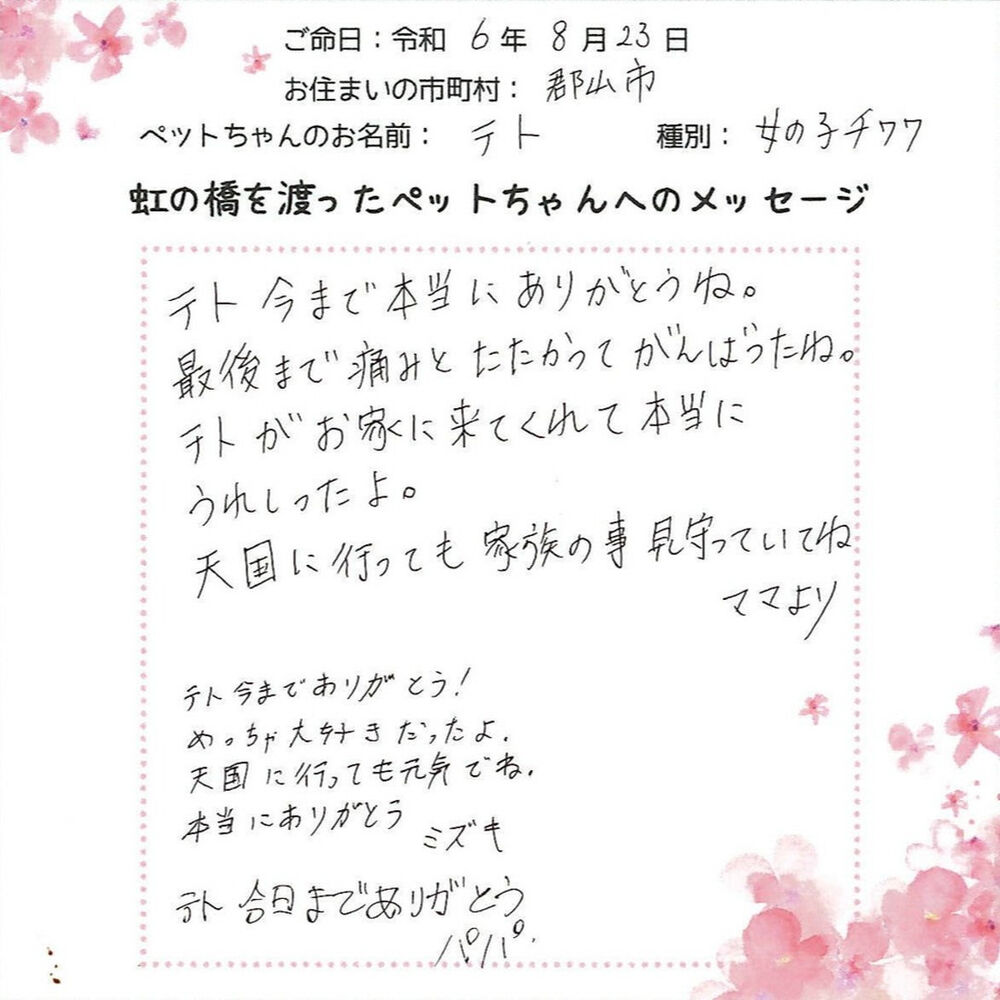 ご命日：令和 6年 8月23日
お住まいの市町村： 郡山市
ペットちゃんのお名前： テト 種別： 女の子チワワ
虹の橋を渡ったペットちゃんへのメッセージ
テト 今まで本当にありがとうね。
最後まで痛みと たたかって がんばったね。
テトがお家に来てくれて本当に
うれしったよ。
天国に行っても 家族の事 見守っていてね
ママより
テト 今までありがとう！
めっちゃ大好きだったよ．
天国に行っても元気でね．
本当にありがとう
ミズキ
テト 今日までありがとう
パパ．